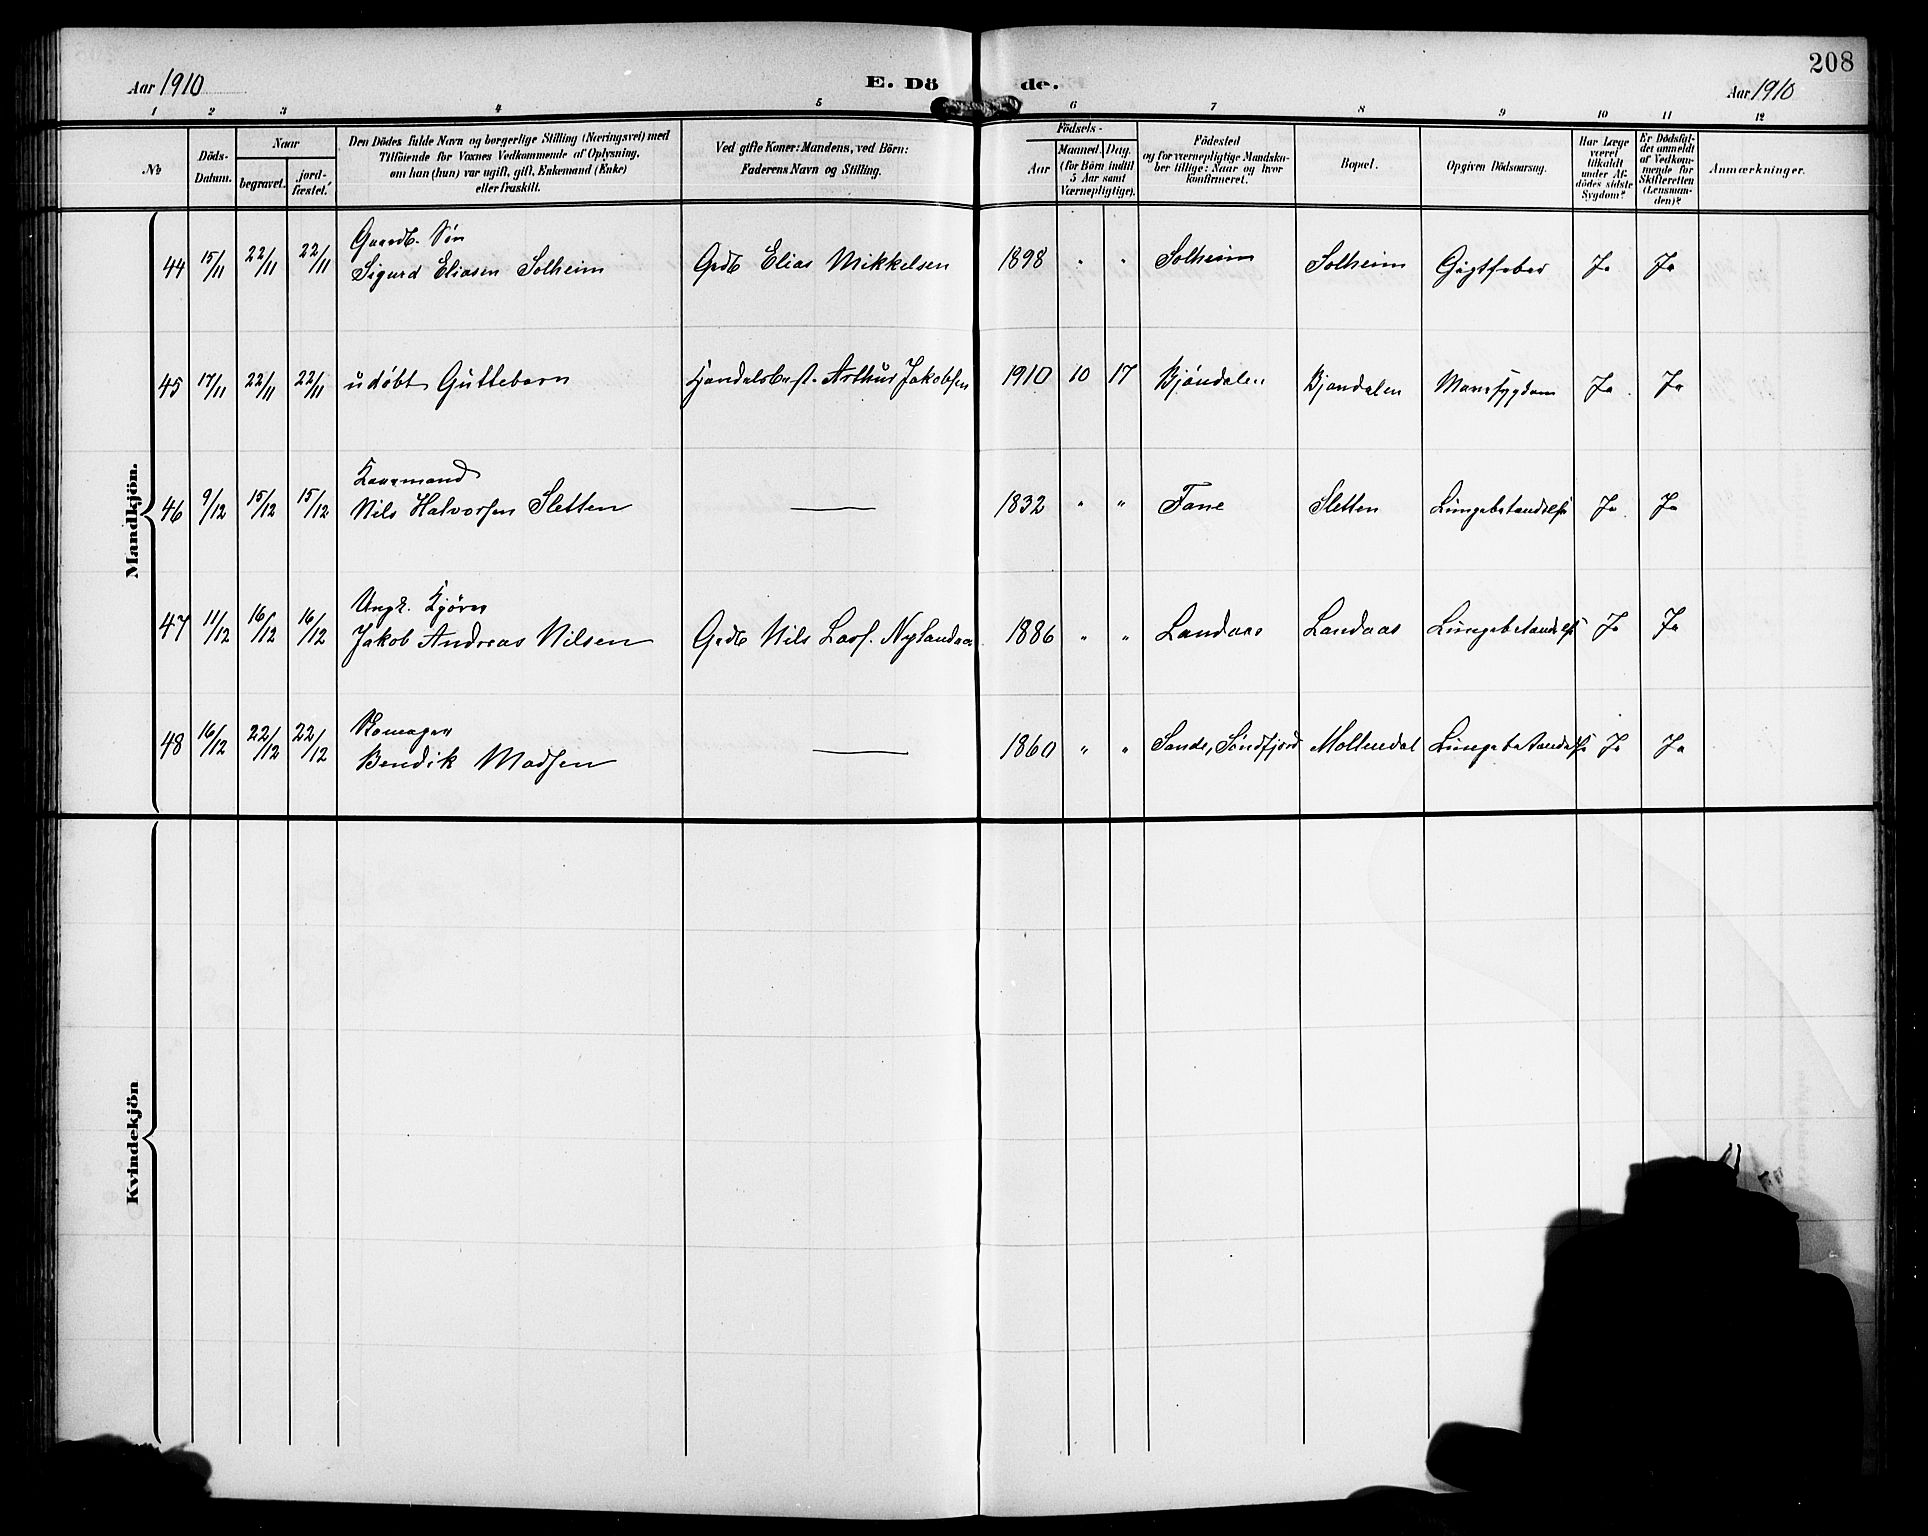 208
Aar 1910
E. Dö de.
Aar 1910
1 2 3 4 5 6 7 8 9 10 11 12
No
Döds-Datum.
Naar
begravet.
jord-fæstet.
Den Dödes fulde Navn og borgerlige Stilling (Næringsvei) med
Tilföiende for Voxnes Vedkommende af Oplysning,
om han (hun) var ugift, gift, Enkemand (Enke)
eller fraskilt.
Ved gifte Koner: Mandens, ved Börn:
Faderens Navn og Stilling.
Födsels-
Aar
Maaned. Dag.
(for Börn indtil
5 Aar samt
Værnepligtige).
Födested
og for værnepligtige Mandska-
ber tillige: Naar og hvor
konfirmeret.
Bopæl.
Opgiven Dödsaarsag.
Har Læge
været
tilkaldt
under Af-
dödes sidste
Sygdom?
Er Dödsfal-
det anmeldt
af Vedkom-
mende for
Skifteretten
(Lensman-
den)?
Anmærkninger.
Mandkjön.
Gaardb. Sön
44 15/11 22/11 22/11 Sigurd Eliasen Solheim Grdb Elias Mikkelsen 1898 " " Solheim Solheim Gigtfeber Ja Ja
45 17/11 22/11 22/11 udöbt Guttebarn Arthur Jakobsen 1910 10 17 Bjöndalen Bjøndalen Ja Ja
Kaarmand
46 9/12 15/12 15/12 Nils Halvorsen Sletten — 1832 " " Fane Sletten Lungebetændelse Ja Ja
Ungk.
47 11/12 16/12 16/12 Jakob Andreas Nilsen Grdb Nils Lars. Nylandaas 1886 " " Landaas Landaas Lungebetændelse Ja Ja
48 16/12 22/12 22/12 Bendik Madsen — 1860 " " Sande, Söndfjord Möllendal Lungebetændelse Ja Ja
Kvindekjön